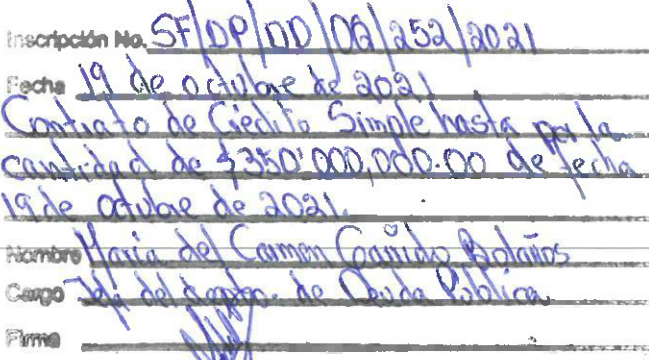 Inscripción No. SF/DP/DD/06/252/2021
Fecha 19 de octubre de 2021
Contrato de Crédito Simple hasta por la
cantidad de $350'000,000.00 de fecha
19 de octubre de 2021.
Nombre María del Carmen Bolaños
Cargo Jefa del depto. de Deuda Pública
Firma